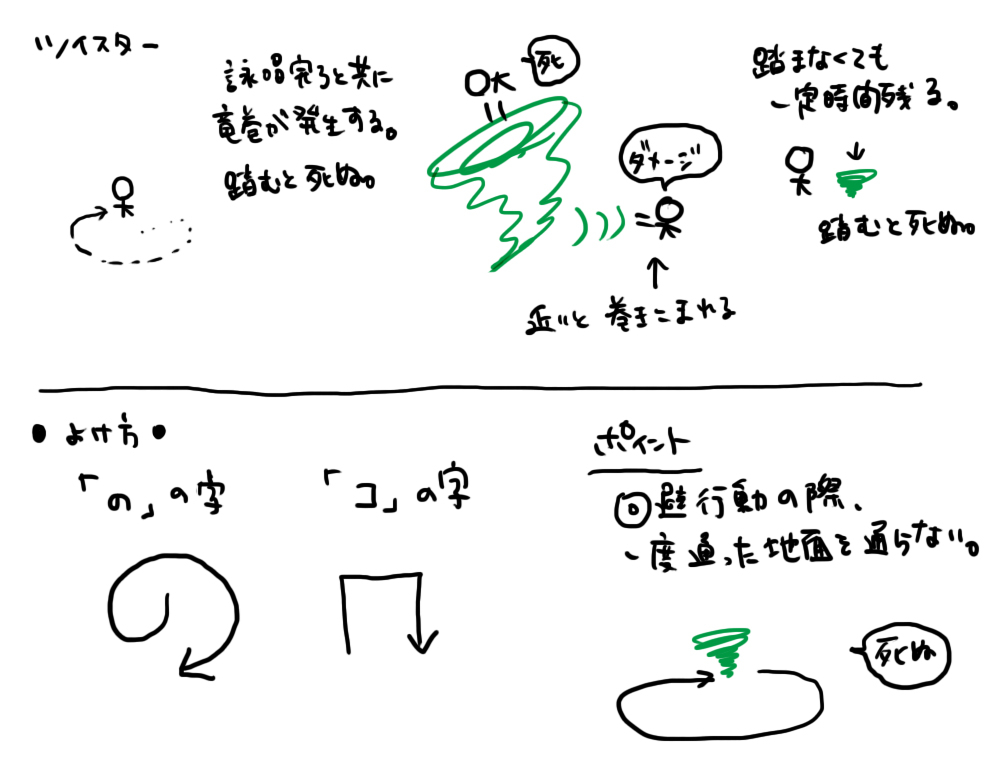 ツイスター
詠唱完了と共に
竜巻が発生する。
踏むと死ぬ。
死
ダメージ
近いと巻きこまれる
踏まなくても
一定時間残る。
踏むと死ぬ。
●よけ方●
「の」の字
「コ」の字
ポイント
回避行動の際、
一度通った地面を通らない。
死ぬ